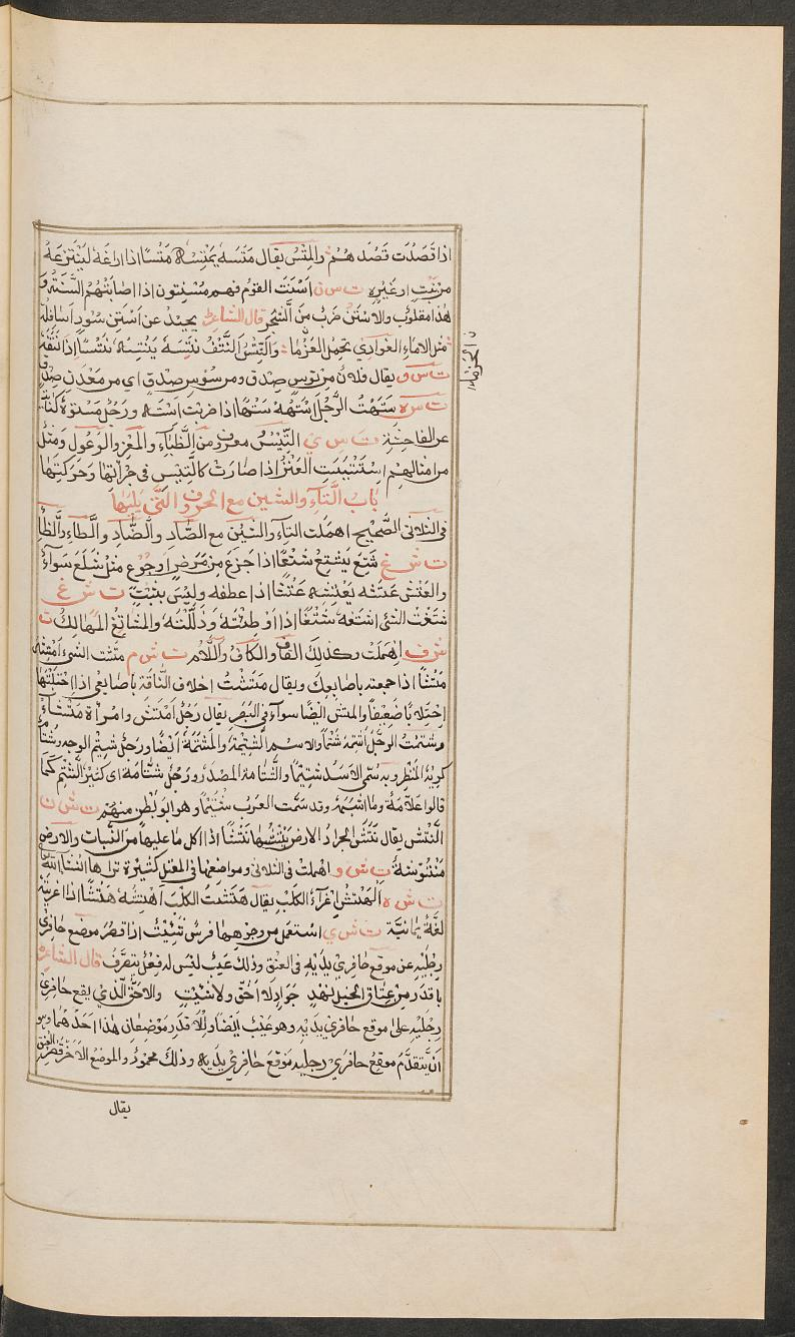 اذا قَصَدْت قَصْدهُمْ والمَتْسُ يقال مَتَسَهُ يَمْتِسُهُ مَتْسًا اذا اراغَهُ لينْتَزِعَهُ
من نَبْتٍ او غيرِهِ ت س ن اَسْنَتَ القومُ فهم مُسْنِتون اذا اصابَتْهُمُ السَّنَةُ و
هُذا مقلوب والاَسْتَنُ ضرب من الشّجر قال الشاعر يحيدُ عن اَسْتَنٍ سُودٍ اسافلهُ
مثل الاماءِ الغوادي تحمِل الحُزَما والنَّتْسُ النَّتْفُ نتَسَهُ يَنْتِسُهُ نتْسًا اذا نتفهُ
ت س و يقال فلان من تُوسِ صِدْقٍ ومن سُوسِ صِدْقٍ اي من مَعْدِنِ صِدْقٍ
ت س ه سَتَهْتُ الرَّجُلَ اَسْتَهُهُ سَتْهًا اذا ضربْت اسْتَهُ ورَجُل مَسْتوهٌ كنايَة
عن الفاحشة ت س ي التَّيْسُ معروف من الظِّبَاءِ والمَعْزِ والوُعُولِ وَمَثَلٌ
من امثالهم اسْتَتْيَسَتِ العَنْزُ اذا صَارَتْ كالتَّيْس في جُرْأتها وَحَرَكَتِهَا
بابُ التَّآءِ والشين مع الحروف التي يَليهَا
في الثلاثيّ الصَّحِيح اهملت التاءُ والشّين مع الصَّادِ والضّادِ والطّاءِ والظّا
ت ش ع شَتِعَ يَشْتَعُ شَتَعًا اذا جَزِعَ من مَرَضٍ او جُوعٍ مثل شَكِعَ سَواءً
والعَتْش عَتَشَه يَعْتِشُه عَتْشًا اذا عطفه وليْسَ بثبْتٍ ت ش غ
شَتَغْتُ الشّيَ اَشْتَغُهُ شَتْغًا اذا اَوْطِئْتَهُ وَذَلَّلْتَهُ والمَشَاتِغُ المَهَالِكُ ت
ش ف اُهْمِلَتْ وكذلِك القاف والكاف واللَّامُ ت ش م مَتَشْتُ الشيءَ اَمْتِشُهُ
مَتْشًا اذا جمعته باصابعك ويقال مَتَشْتُ اخلاف النَّاقَة باصابعي اذا احْتَلَبْتَهَا
احْتِلابًا ضعيفًا والمَتَش ايضًا سوآءٌ في البَصَر يقال رَجُل اَمْتَش وامراَة مَتْشَاءُ
وشَتَمْتُ الرجُل اَشْتِمُهُ شَتْمًا والاسم الشَّتِيمَةُ والمَشْتَمَةُ اَيْضًا ورَجُل شَتِيم الوجه
كريه المَنْظَرِ وبه سُمِّي الاَسَد شتيمًا والشَّتَامة المصْدَر ورَجُل شَتَّامَة اي كثير الشَّتْمِ كما
قالوا عَلّامَة وما اشبهَهُ وقد سَمَّت العَرَبُ شُتَيْمًا وهو ابو بَطْنٍ منهم ت ش ن
النَّتْش يقال نَتَشَ الجرادُ الارضَ يَنْتِشُها نَتْشًا اذا اَكل ما عليها من النَّبات والارض
مَنْتُوشَة ت ش و اهملت في الثلاثي ومواضعها في المعتل كثيرة تراها ان شاء الله
ت ش ه الهَتْش اغرآءُ الكلْب يقال هَتَشْتُ الكلْبَ اَهْتِشُهُ هَتْشًا اذا اغريتهُ
لغة يمانيَة ت ش ي استعمل من وجوهها فرسٌ شَئِيْتٌ اذا قصُرَ موضع حافري
رِجْلَيْهِ عن موقع حافري يَدَيْهِ في العَنَق وذلك عَيْبٌ لَيْسَ له فِعْلٌ يتصَرَّف قال الشاعر
باقدَر من عِتاق الخيل نَهْدٍ جَوَادٍ لا اَحَقَّ ولا شئيتِ والاَحَقّ الّذي يقع حافري
رِجْلَيْهِ على موقع حافري يَدَيْهِ وهو عَيْبٌ ايضًا والاَقدَر موضعان هٰذا احَدُهُما وهو
اَنْ يتقدَّم موقع حافري رجليه موْقعَ حافري يدَيه وذلك محمودٌ والموضع الآخر قِصَر العُنق
يقال
ن الحُزَما